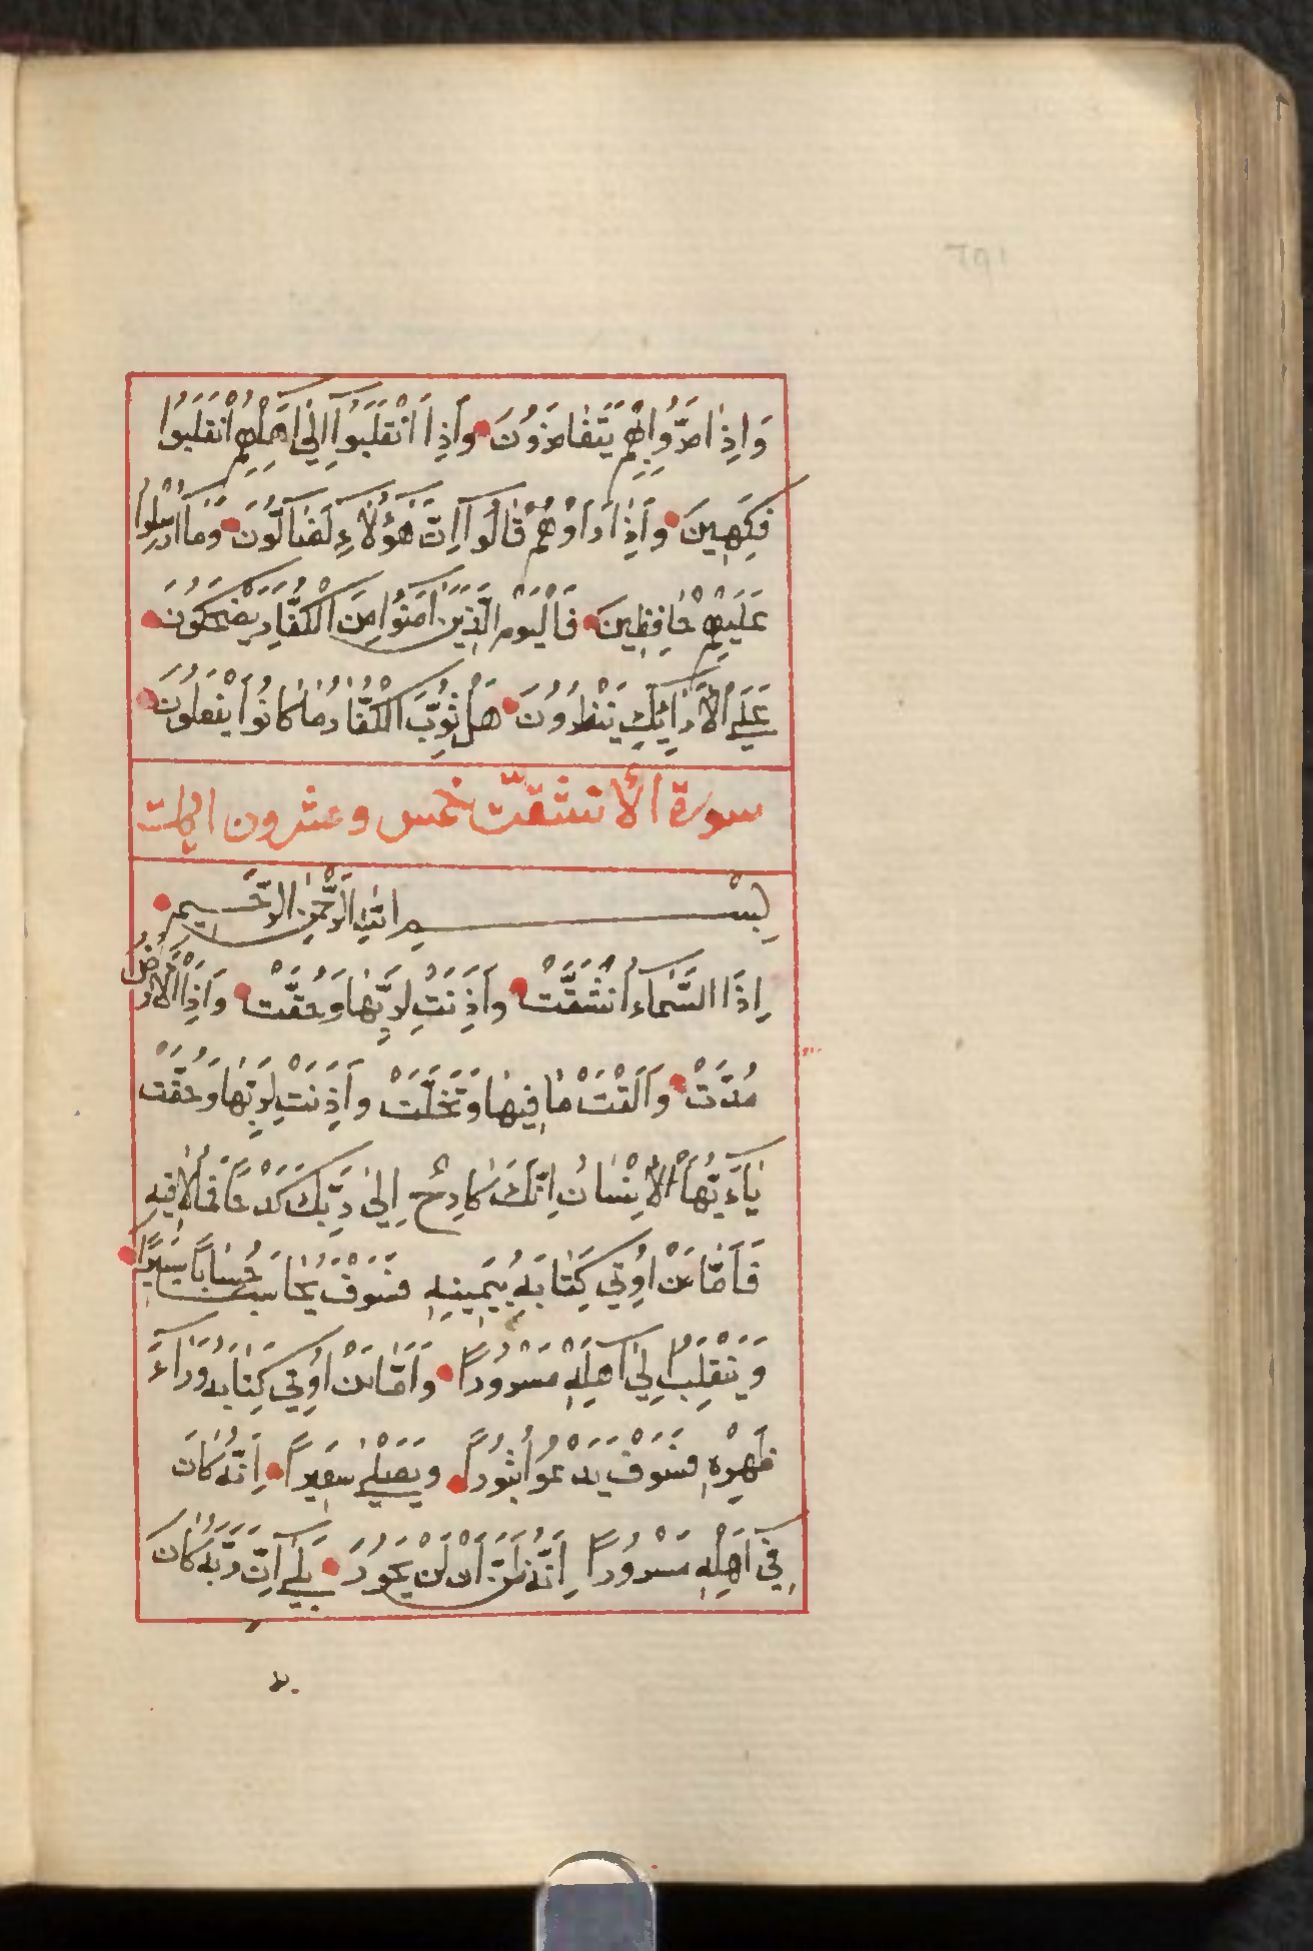 وَاِذَا مَرُّوا بِهِمْ يَتَغَامَزُونَ وَاِذَا اَنْقَلَبُوا اِلٰى اَهْلِهِمُ اَنْقَلَبُوا
فَكِهِينَ وَاِذَا رَاَوْهُمْ قَالُوا اِنَّ هٰؤُلَاءِ لَضَالُّونَ وَمَا اُرْسِلُوا
عَلَيْهِمْ حَافِظِينَ فَالْيَوْمَ الَّذِينَ اٰمَنُوا مِنَ الْكُفَّارِ يَضْحَكُونَ
عَلَى الْاَرَائِكِ يَنْظُرُونَ هَلْ ثُوِّبَ الْكُفَّارُ مَا كَانُوا يَفْعَلُونَ
سورة الأنشقّت خمس وعشرون ايات
بِسْمِ اللّٰهِ الرَّحْمٰنِ الرَّحِيمِ
اِذَا السَّمَاءُ انْشَقَّتْ وَاَذِنَتْ لِرَبِّهَا وَحُقَّتْ وَاِذَا الْاَرْضُ
مُدَّتْ وَاَلْقَتْ مَا فِيهَا وَتَخَلَّتْ وَاَذِنَتْ لِرَبِّهَا وَحُقَّتْ
يَاءَيُّهَا الْاِنْسَانُ اِنَّكَ كَادِحٌ اِلٰى رَبِّكَ كَدْحًا فَمُلَاقِيهِ
فَاَمَّا مَنْ اُوتِيَ كِتَابَهُ بِيَمِينِهِ فَسَوْفَ يُحَاسَبُ حِسَابًا يَسِيرًا
وَيَنْقَلِبُ اِلٰى اَهْلِهِ مَسْرُورًا وَاَمَّا مَنْ اُوتِيَ كِتَابَهُ وَرَاءَ
ظَهْرِهِ فَسَوْفَ يَدْعُوا ثُبُورًا وَيَصْلٰى سَعِيرًا اِنَّهُ كَانَ
فِي اَهْلِهِ مَسْرُورًا اِنَّهُ ظَنَّ اَنْ لَنْ يَحُورَ بَلٰى اِنَّ رَبَّهُ كَانَ